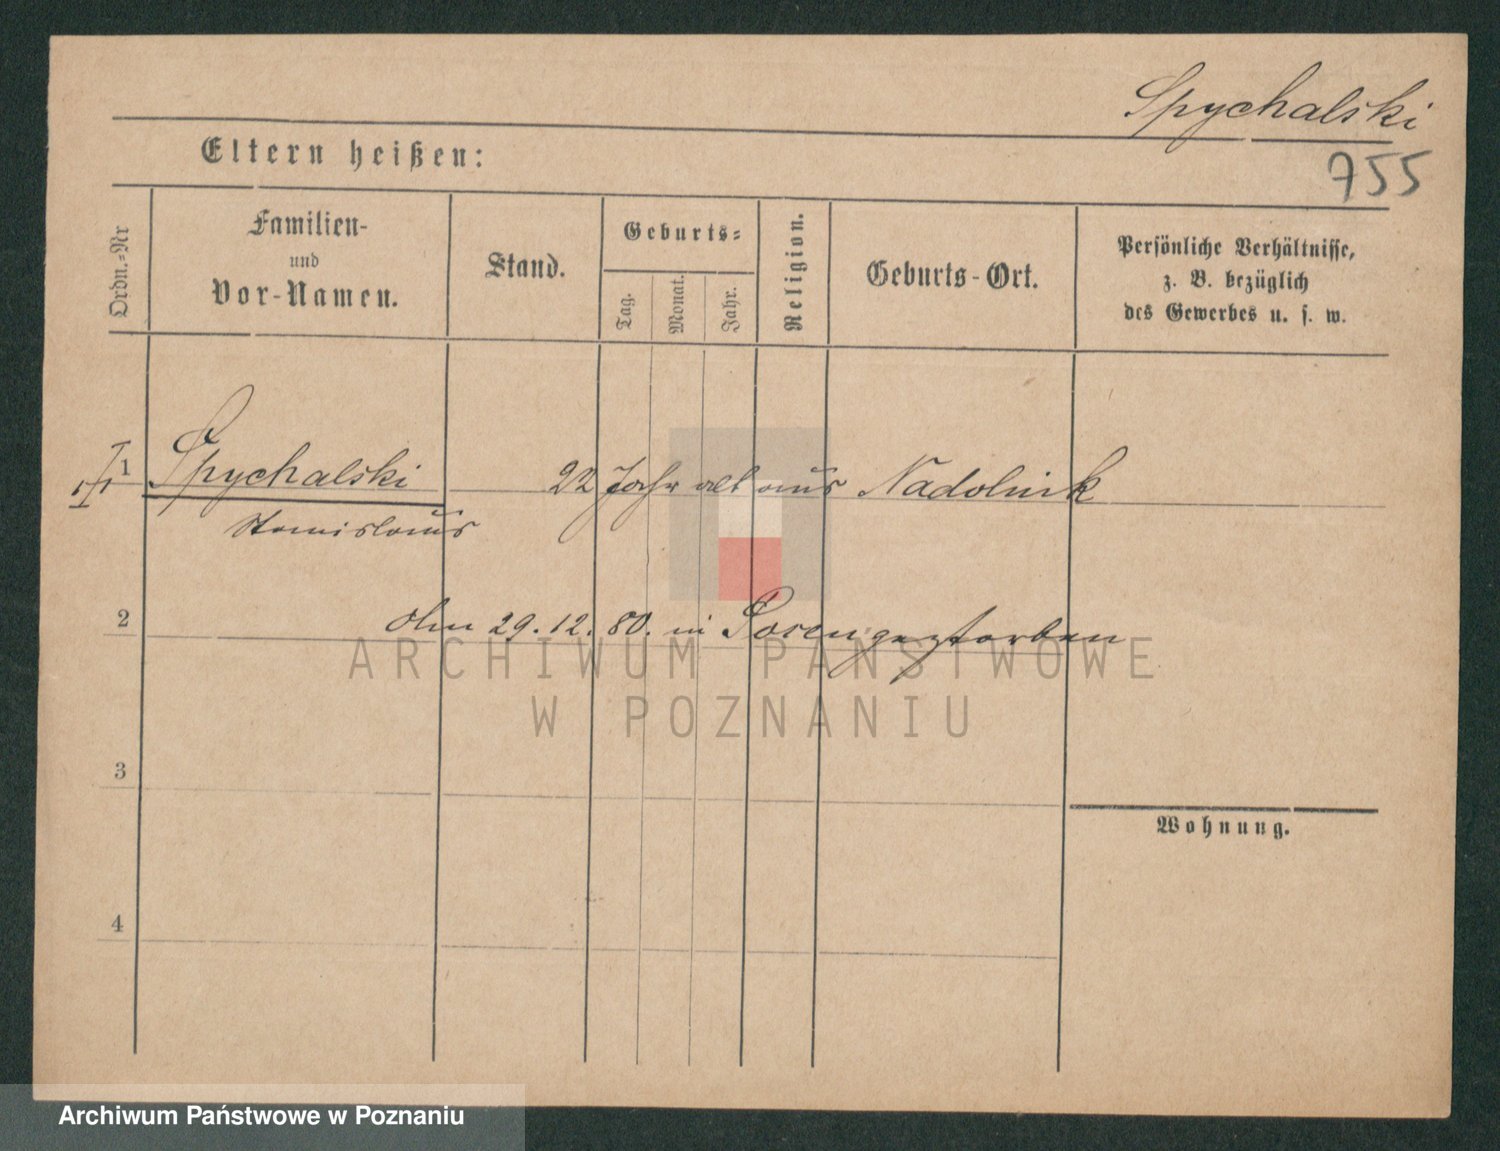 Spychalski
755
Eltern heißen:
Ordn.-Nr
Familien-
und
Vor-Namen.
Stand.
Geburts-
Tag.
Monat.
Jahr.
Religion.
Geburts-Ort.
Persönliche Verhältnisse,
z. B. bezüglich
des Gewerbes u. s. w.
1
Spychalski 22 Jahr alt aus Nadolnik
Stanislaus
2
Am 29.12.80. in Posen gestorben
ARCHIWUM PAŃSTWOWE
W POZNANIU
3
Wohnung.
4
Archiwum Państwowe w Poznaniu